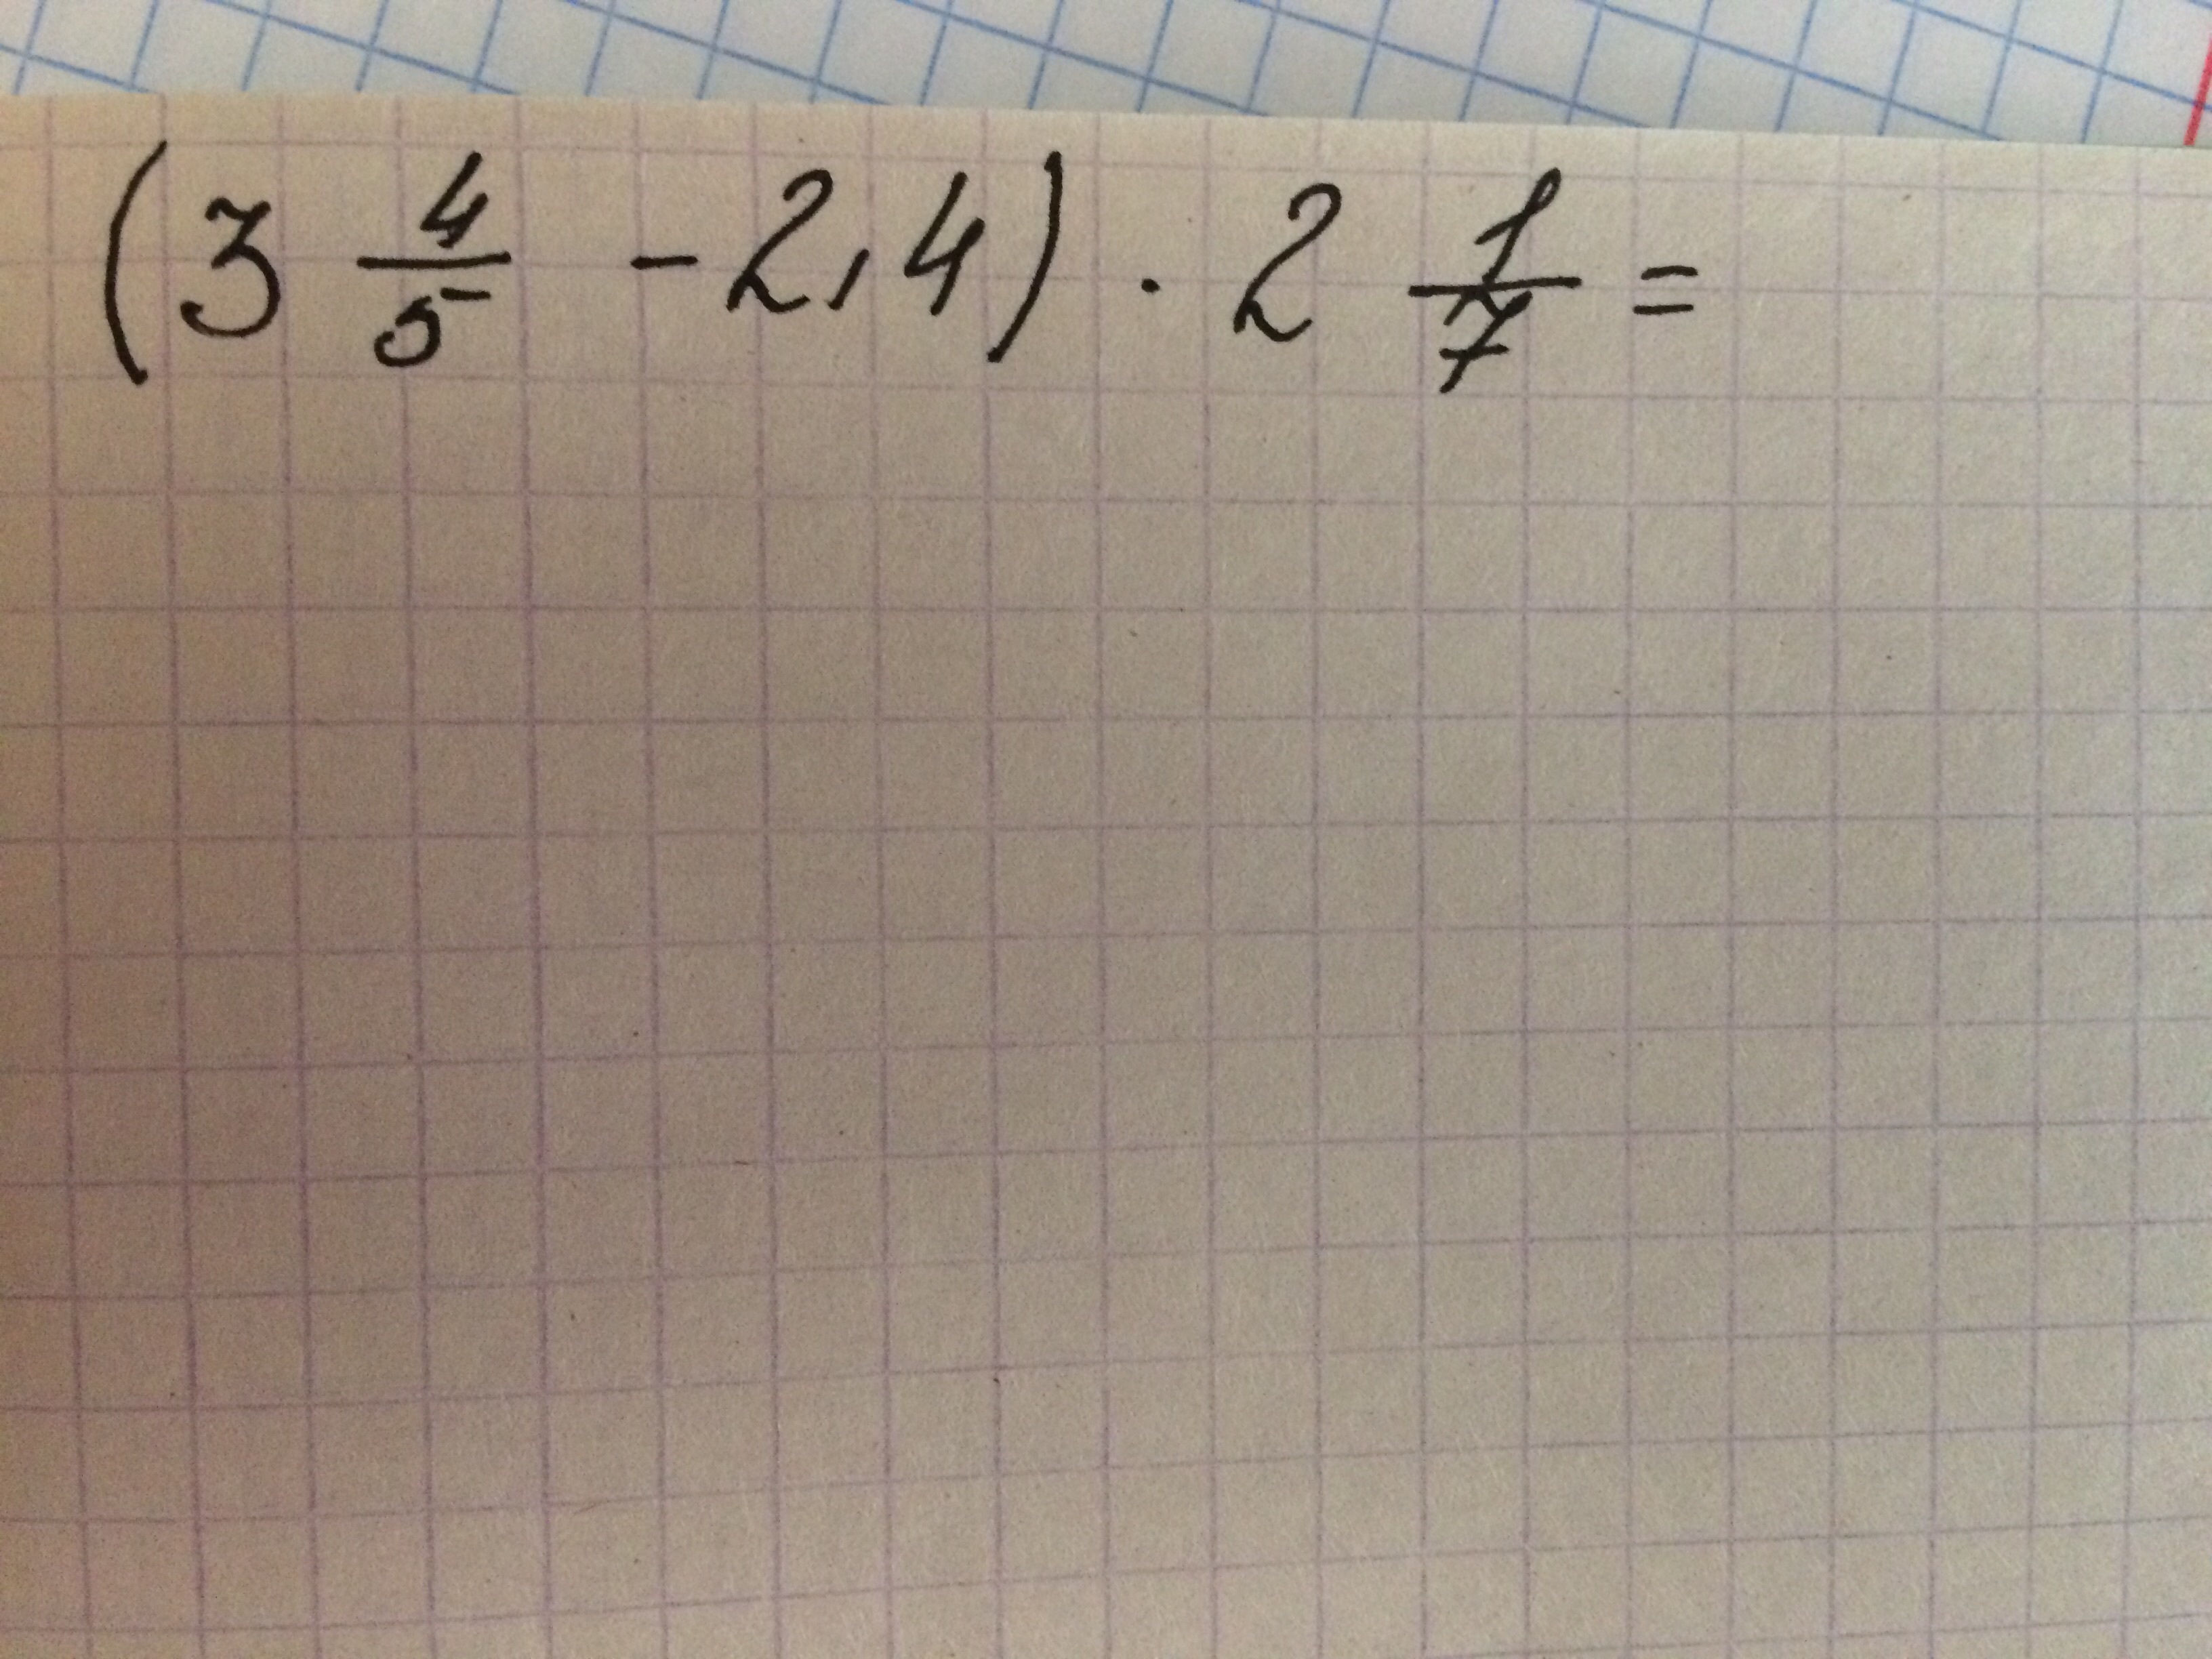 (3 4/5 - 2,4) · 2 1/7 =